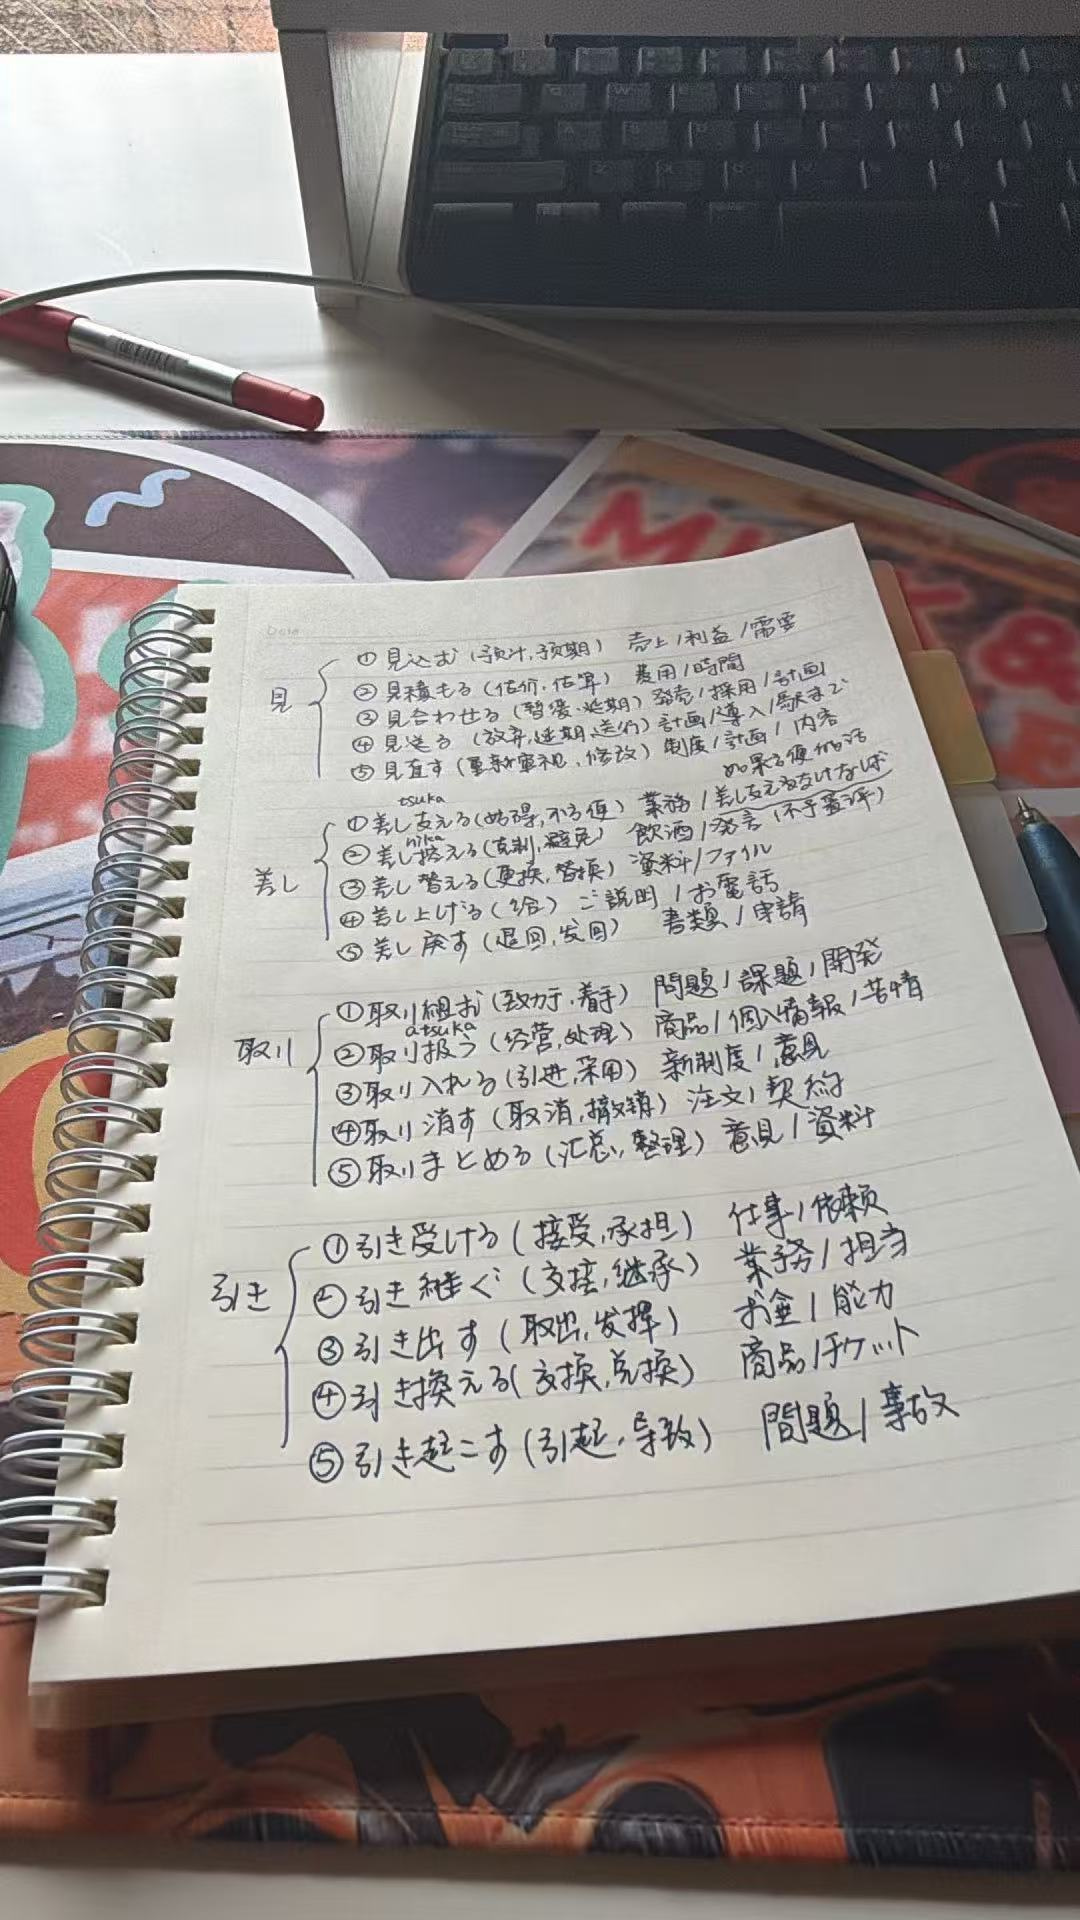 Date
見
①見込む(预计,预期) 売上/利益/需要
②見積もる(估价.估算) 費用/時間
③見合わせる(暂缓.延期) 発売/採用/計画
④見送る(放弃,延期,送行) 計画/導入/駅まで
⑤見直す(重新审视、修改) 制度/計画/内容
如果方便的话
tsuka
差し
①差し支える(妨碍,不方便) 業務/差し支えなければ
hika
②差し控える(克制,避免) 飲酒/発言(不予置评)
③差し替える(更换,替换) 資料/ファイル
④差し上げる(给) ご説明/お電話
⑤差し戻す(退回,发回) 書類/申請
取り
①取り組む(致力于,着手) 問題/課題/開発
atsuka
②取り扱う(经营,处理) 商品/個人情報/苦情
③取り入れる(引进,采用) 新制度/意見
④取り消す(取消,撤销) 注文/契約
⑤取りまとめる(汇总,整理) 意見/資料
引き
①引き受ける(接受,承担) 仕事/依頼
②引き継ぐ(交接,继承) 業務/担当
③引き出す(取出,发挥) お金/能力
④引き換える(交换,兑换) 商品/チケット
⑤引き起こす(引起,导致) 問題/事故